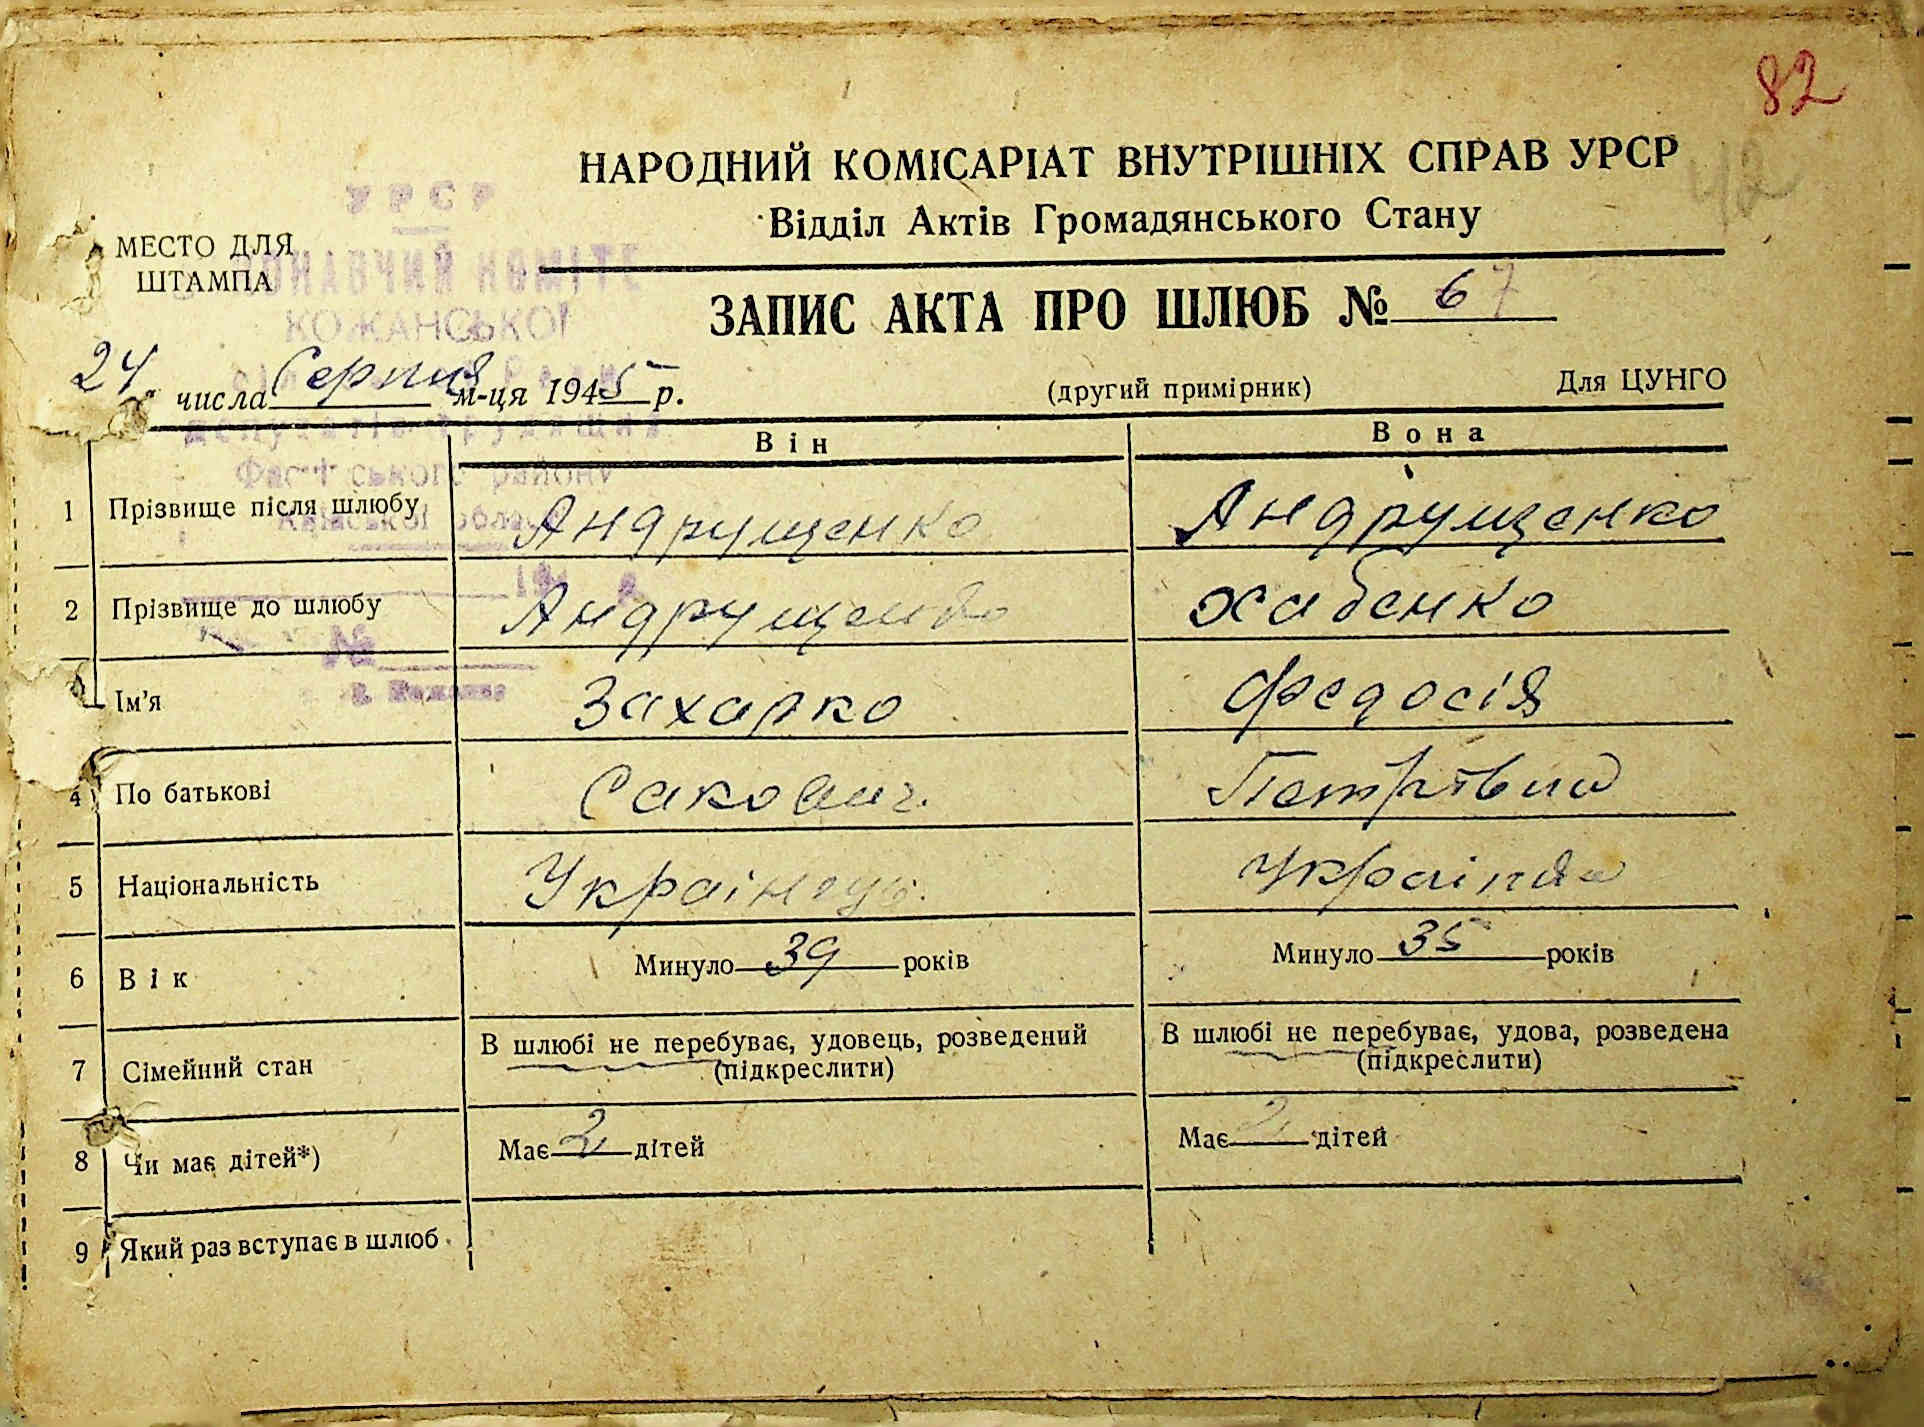 82
42
НАРОДНИЙ КОМІСАРІАТ ВНУТРІШНІХ СПРАВ УРСР
Відділ Актів Громадянського Стану
УРСР
КОЖАНСЬКОЇ
МЕСТО ДЛЯ
ШТАМПА
ЗАПИС АКТА ПРО ШЛЮБ № 67
24 числа Серпня м-ця 1945 р.
(другий примірник) Для ЦУНГО
депутатів трудящих
району
Київської
Він Вона
1 Прізвище після шлюбу Андрущенко Андрущенко
2 Прізвище до шлюбу Андрущенко Хабенко
№
Ім'я Захарко Федосія
4 По батькові Сакович Петрівна
5 Національність Українець Українка
6 Вік Минуло 39 років Минуло 35 років
7 Сімейний стан В шлюбі не перебуває, удовець, розведений (підкреслити) В шлюбі не перебуває, удова, розведена (підкреслити)
8 Чи має дітей*) Має 2 дітей Має 2 дітей
9 Який раз вступає в шлюб